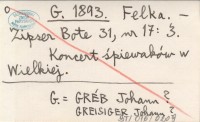 G. 1893. Felka. –
Zipser Bote 31, nr 17: 3.
Koncert śpiewaków w
Wielkiej.
G. = GRÉB Johann ?
GREISIGER Johann ?